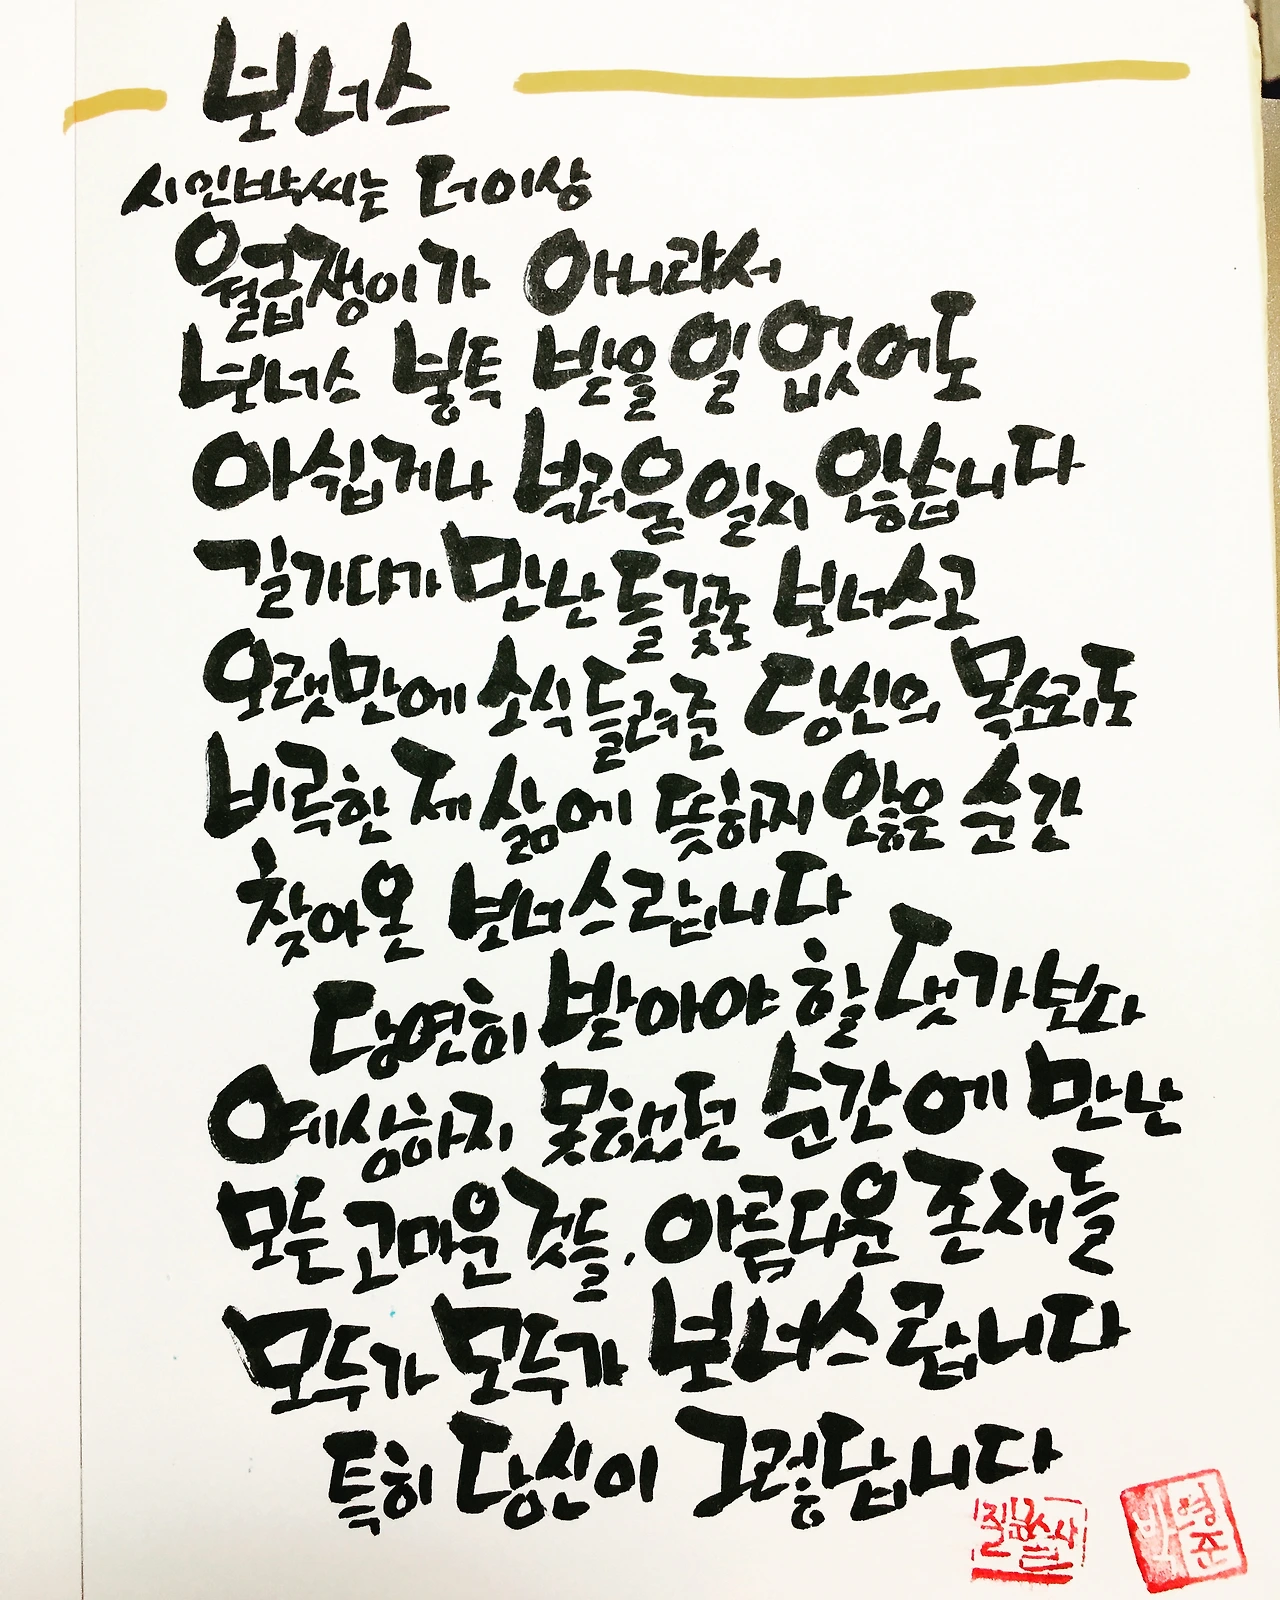 보너스
시인박씨는 더이상
월급쟁이가 아니라서
보너스 봉투 받을 일 없어도
아쉽거나 부러울 일지 않습니다
길가다가 만난 들꽃조 보너스고
오랫만에 소식 들려준 당신의 목소리도
비루한 제 삶에 뜻하지 않은 순간
찾아온 보너스랍니다
당연히 받아야 할 댓가보다
예상하지 못했던 순간에 만난
모든 고마운 것들, 아름다운 존재들
모두가 모두가 보너스랍니다
특히 당신이 그렇답니다
질문술사
박영준